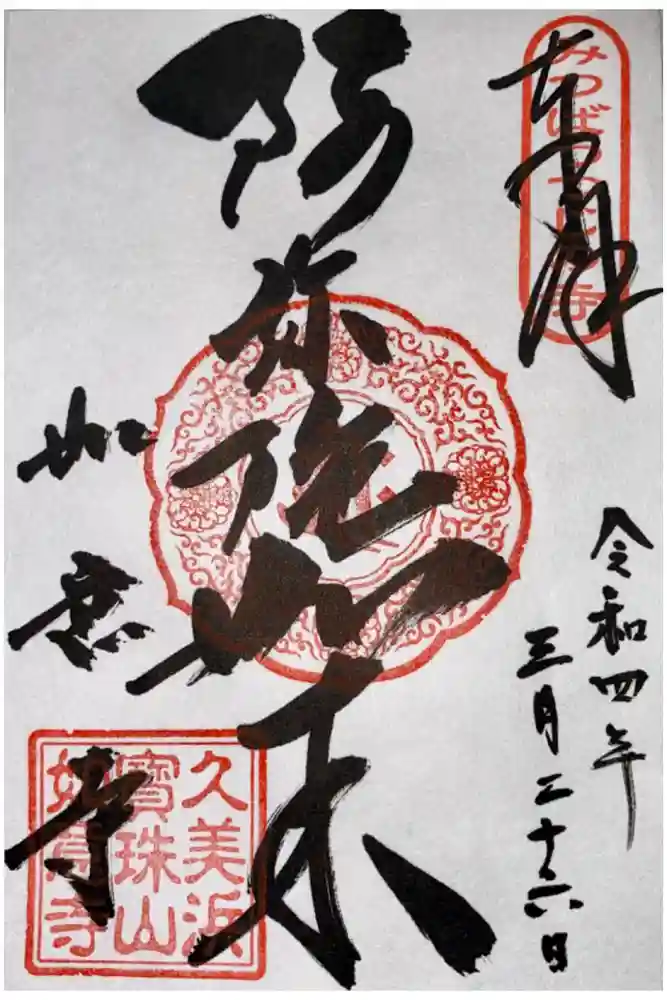 奉拝
みつばつつじの寺
令和四年
三月二十六日
阿弥陀如来
如意寺
久美浜
寳珠山
如意寺